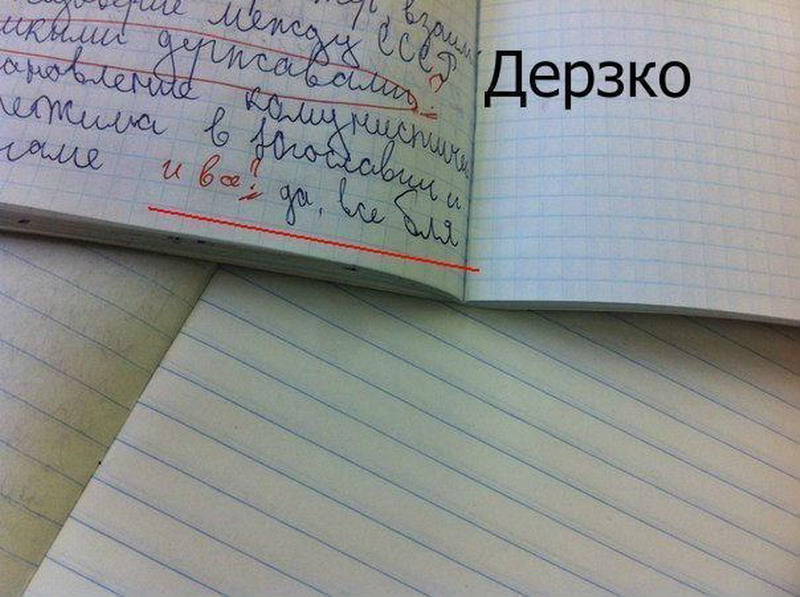 взаим
между СССР
икими державами ?
ановление комунистиче
ежима в Югославии и
наме и все? да, все бля
Дерзко